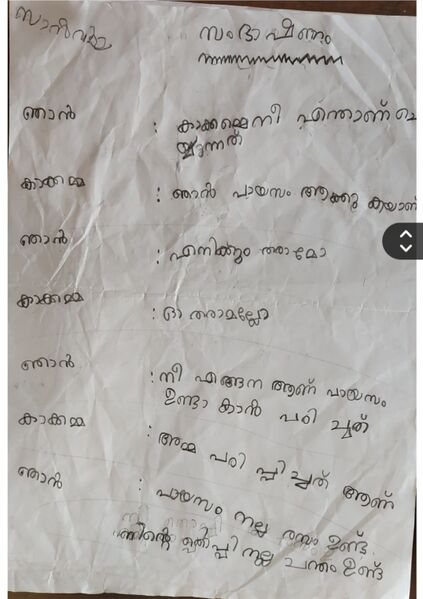 സാൻവിയ
സംഭാഷണം
ഞാൻ : കാക്കമ്മെ നീ എന്താണ് ചെ
യ്യുന്നത്
കാക്കമ്മ : ഞാൻ പായസം ആക്കു കയാണ്
ഞാൻ : എനിക്കും തരാമോ
കാക്കമ്മ : ഓ തരാമല്ലോ
ഞാൻ : നീ എങ്ങന ആണ് പായസം
ഉണ്ടാ കാൻ പഠി ച്ചത്
കാക്കമ്മ : അമ്മ പഠി പ്പി ച്ചത് ആണ്
ഞാൻ : പായസം നല്ല രസം ഉണ്ട്
നല്ല ചന്തം ഉണ്ട്